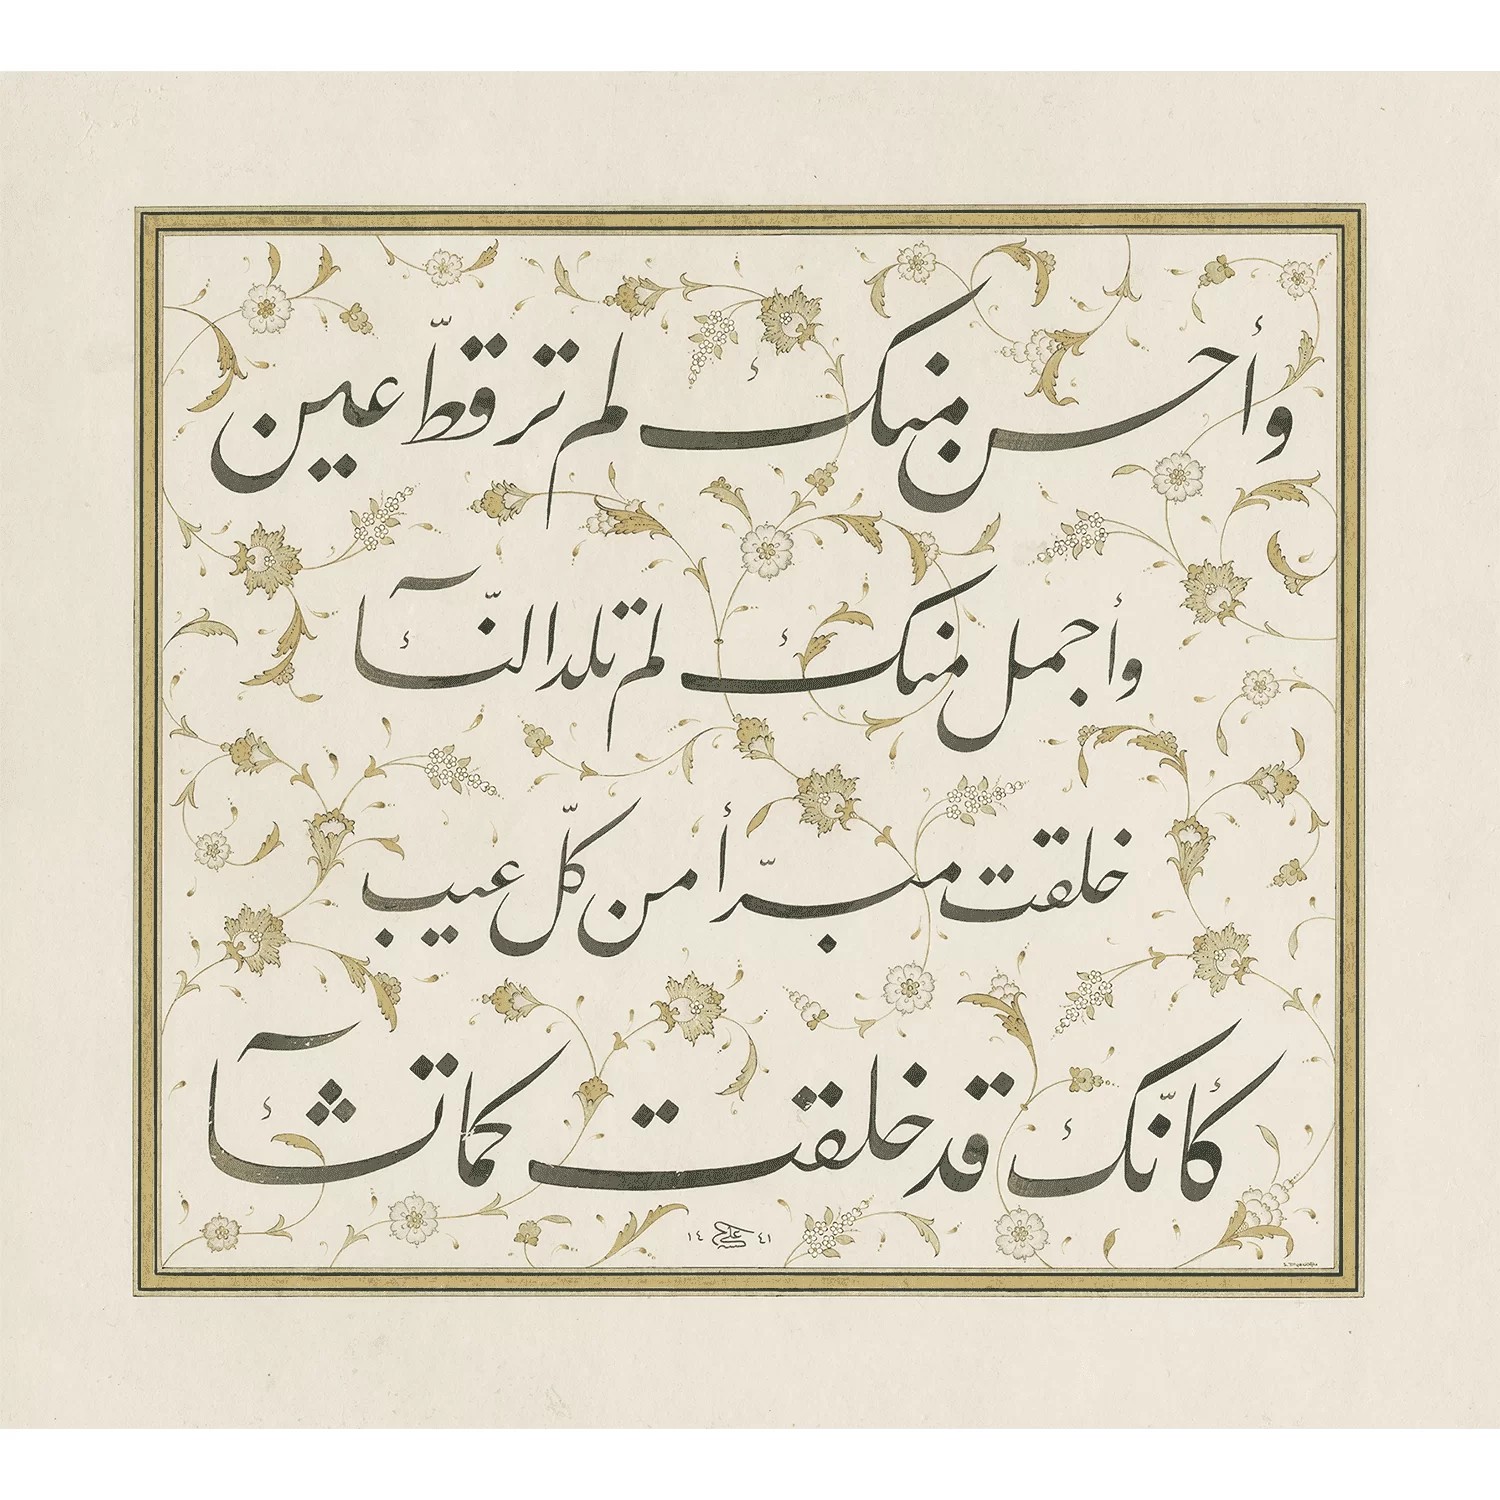 وأحسن منك لم تر قطّ عين
وأجمل منك لم تلد النّسآء
خلقت مبرّأ من كلّ عيب
كأنّك قد خلقت كما تشآء
١٤ علي ٤١